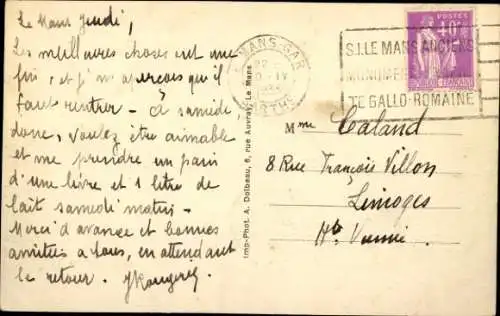 Le Mans Jeudi,
Les meilleures choses ont une
fin, et j'm'aperçois qu'il
faut rentrer - À samedi
donc, voulez être aimable
et me prendre un pain
d'une livre et 1 litre de
lait samedi matin -
Merci d'avance et bonnes
amitiés à tous, en attendant
le retour.
Imp-Phot. A. Dolbeau, 6, rue Auvray, Le Mans
LE MANS-GARE
SARTHE
POSTES
40c
S.I. LE MANS ANCIENS
MONUM
TE GALLO-ROMAINE
Mme Caland
8 Rue François Villon
Limoges
Hte Vienne